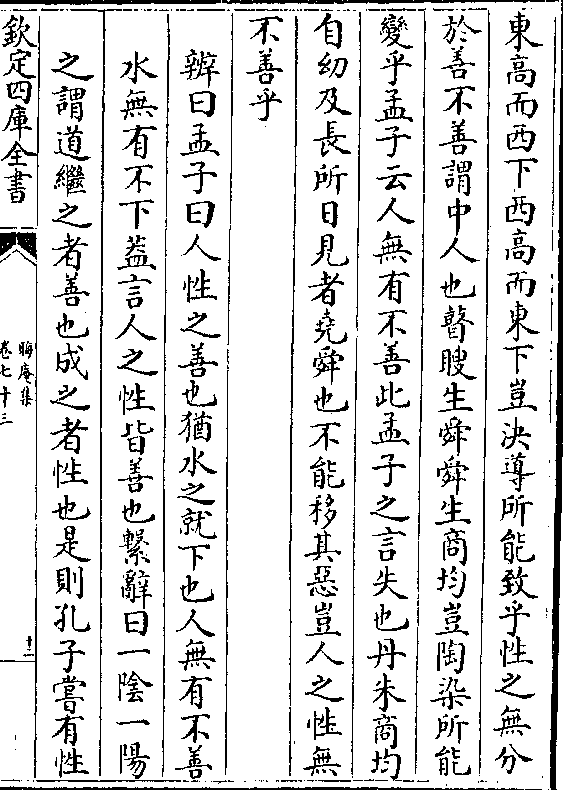 東高而西下西高而東下豈決導所能致乎性之無分
於善不善謂中人也瞽瞍生舜舜生商均豈陶染所能
變乎孟子云人無有不善此孟子之言失也丹朱商均
自幼及長所日見者堯舜也不能移其惡豈人之性無
不善乎
辨曰孟子曰人性之善也猶水之就下也人無有不善
水無有不下葢言人之性皆善也繫辭曰一陰一陽
之謂道繼之者善也成之者性也是則孔子嘗有性
欽定四庫全書
晦庵集
卷七十三
十二